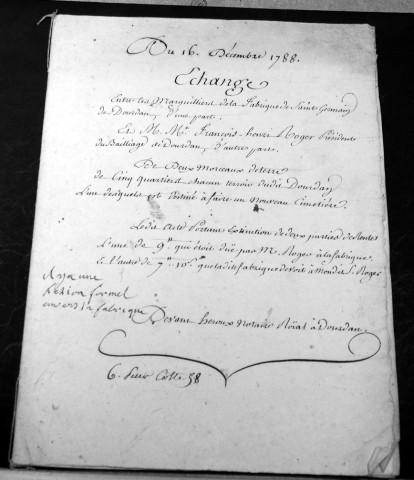 Du 16. Décembre 1788.
Echange
Entre les Marguilliers de la fabrique de Saint Germain
de Dourdan, d'une part.
Et M. Me. François-henri Roger Président
du Bailliage de Dourdan, d'autre part.
De Deux morceaux de terre
de Cinq quartiers chacun terroir dudit Dourdan
L'un desquels est destiné à faire un nouveau Cimetière.
Led. Acte Portant Extinction de deux parties de Rentes
L'une de 9lt. qui étoit düe par M. Roger à la fabrique
Et l'autre de 7lt. 10s. que ladite fabrique devoit à mondit S. Roger
il y a une
formel
envers la fabrique
Devant heroux Notaire Royal à Dourdan.
6. Cotte 58